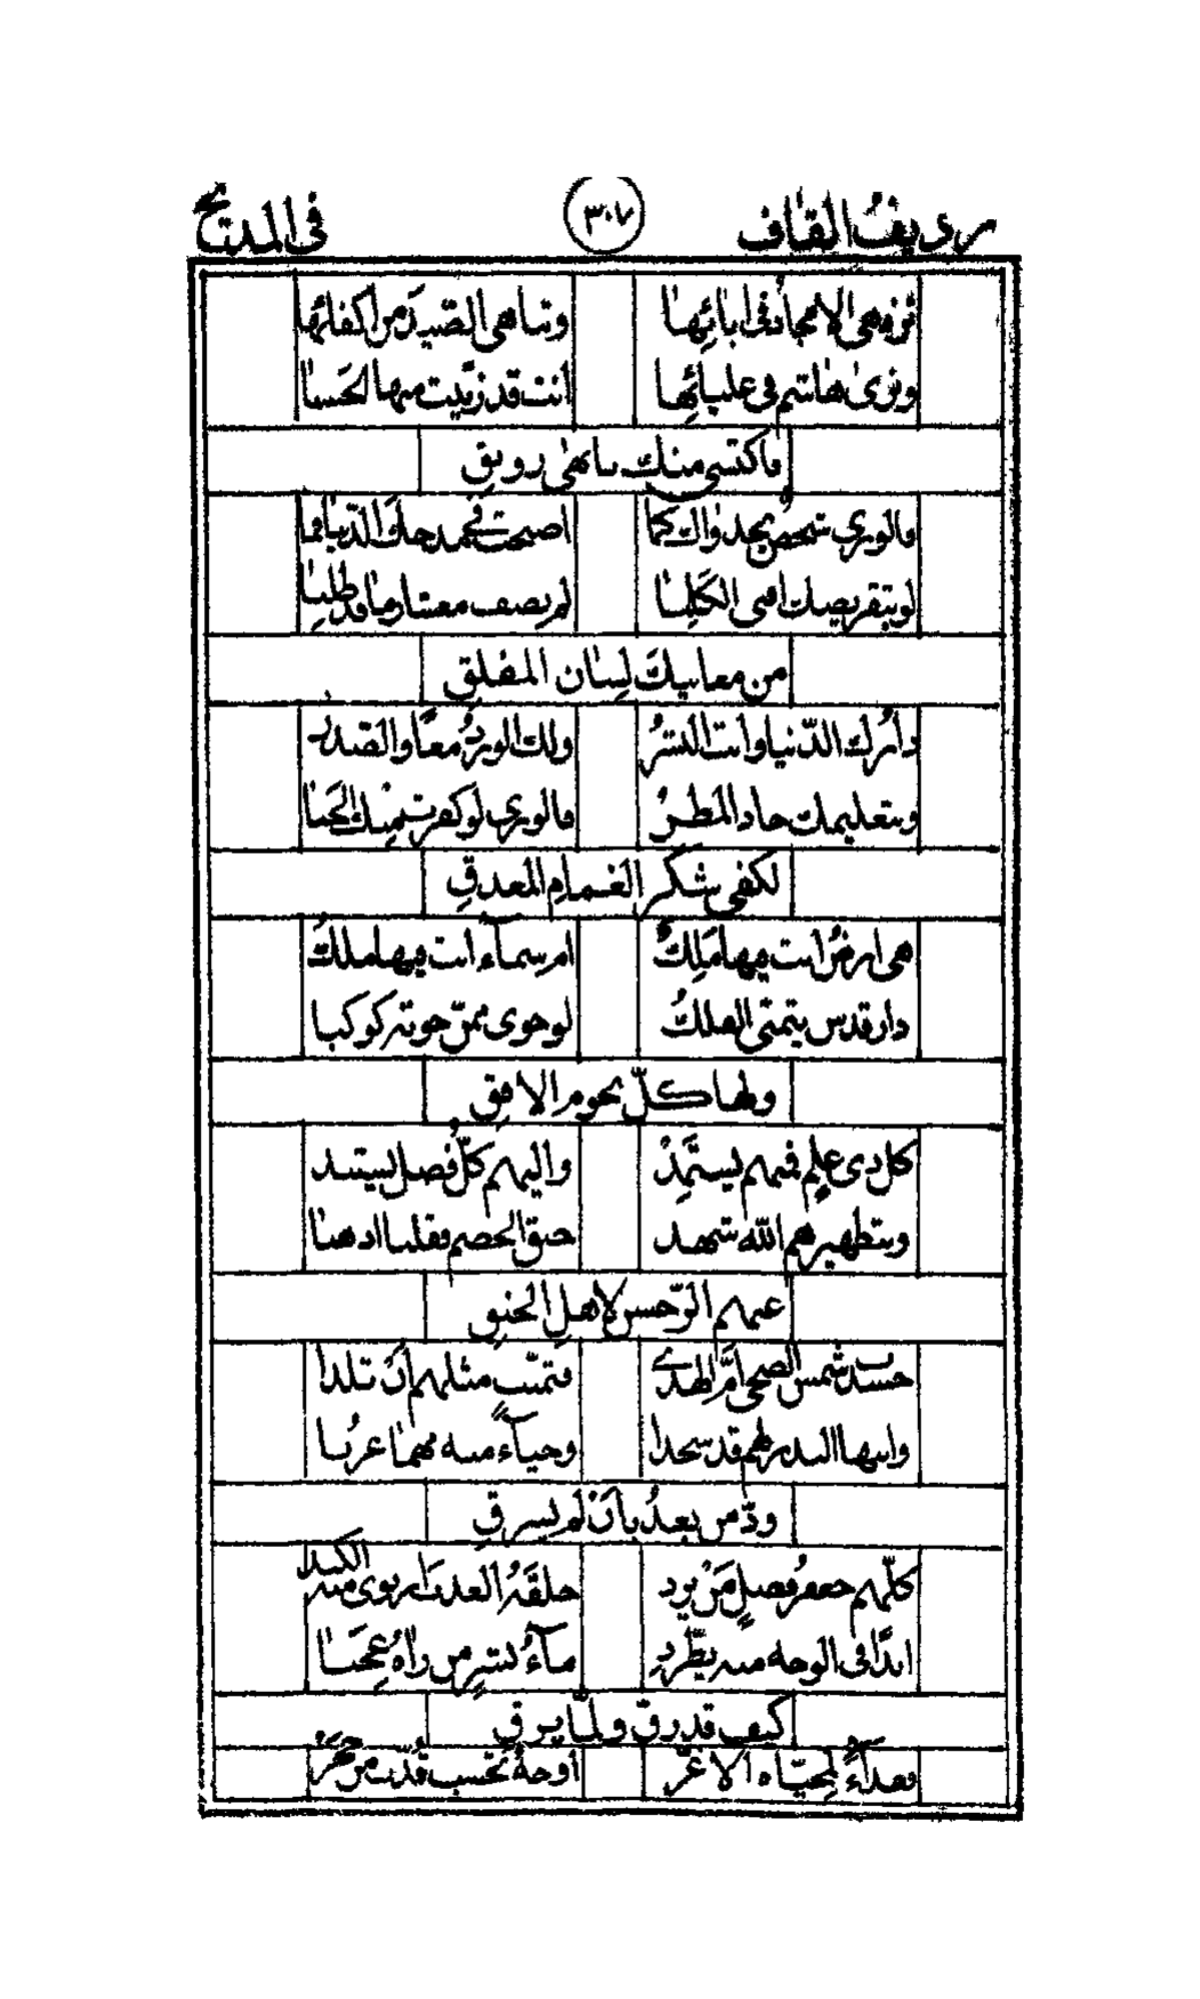 رديف القاف ٣٠٧ في المديح
تزدهي الامجاد في ابائها وتباهي الصيد من اكفائها
وترى هاشم في عليائها انت قد زينت منها الحسبا
فاكتسى منك بابهى رونق
فالورى شخص بجدواك كما اصبحت في مدحك الدنيا فما
لو بتقريضك افنى الكلما لم يصف معشار ما قد طلبا
من معانيك لسان المفلق
دارك الدنيا وانت البشر ولك الورد معا والصدر
وبتعليمك جاد المطر فالورى لو كفرت منك الحبا
لكفى شكر الغمام المغدق
هي ارض انت فيها ملك ام سماء انت فيها ملك
دار قدس يتمنى الفلك لو حوى ممن حوته كوكبا
ولها كل نجوم الافق
كل ذي علم فمنهم يستمد واليهم كل فضل يستند
وبتطهيرهم الله شهد
عنهم الرجس لاهل
حسدت شمس الضحى ام الهدى فتمنت مثلهم ان تلدا
وابنها البدر لهم قد سجدا وحياء منه مهما غربا
ود من بعد بان لم يشرق
كلهم جعفر فضل من يرد خلقه العذب ارتوى منه الكبد
ابدا في الوجه منه يطرد ماء بشر من رآه عجبا
كيف قد رق ولما يرق
فداء لمحياه الاغر اوجه تحسب قدت من حجر